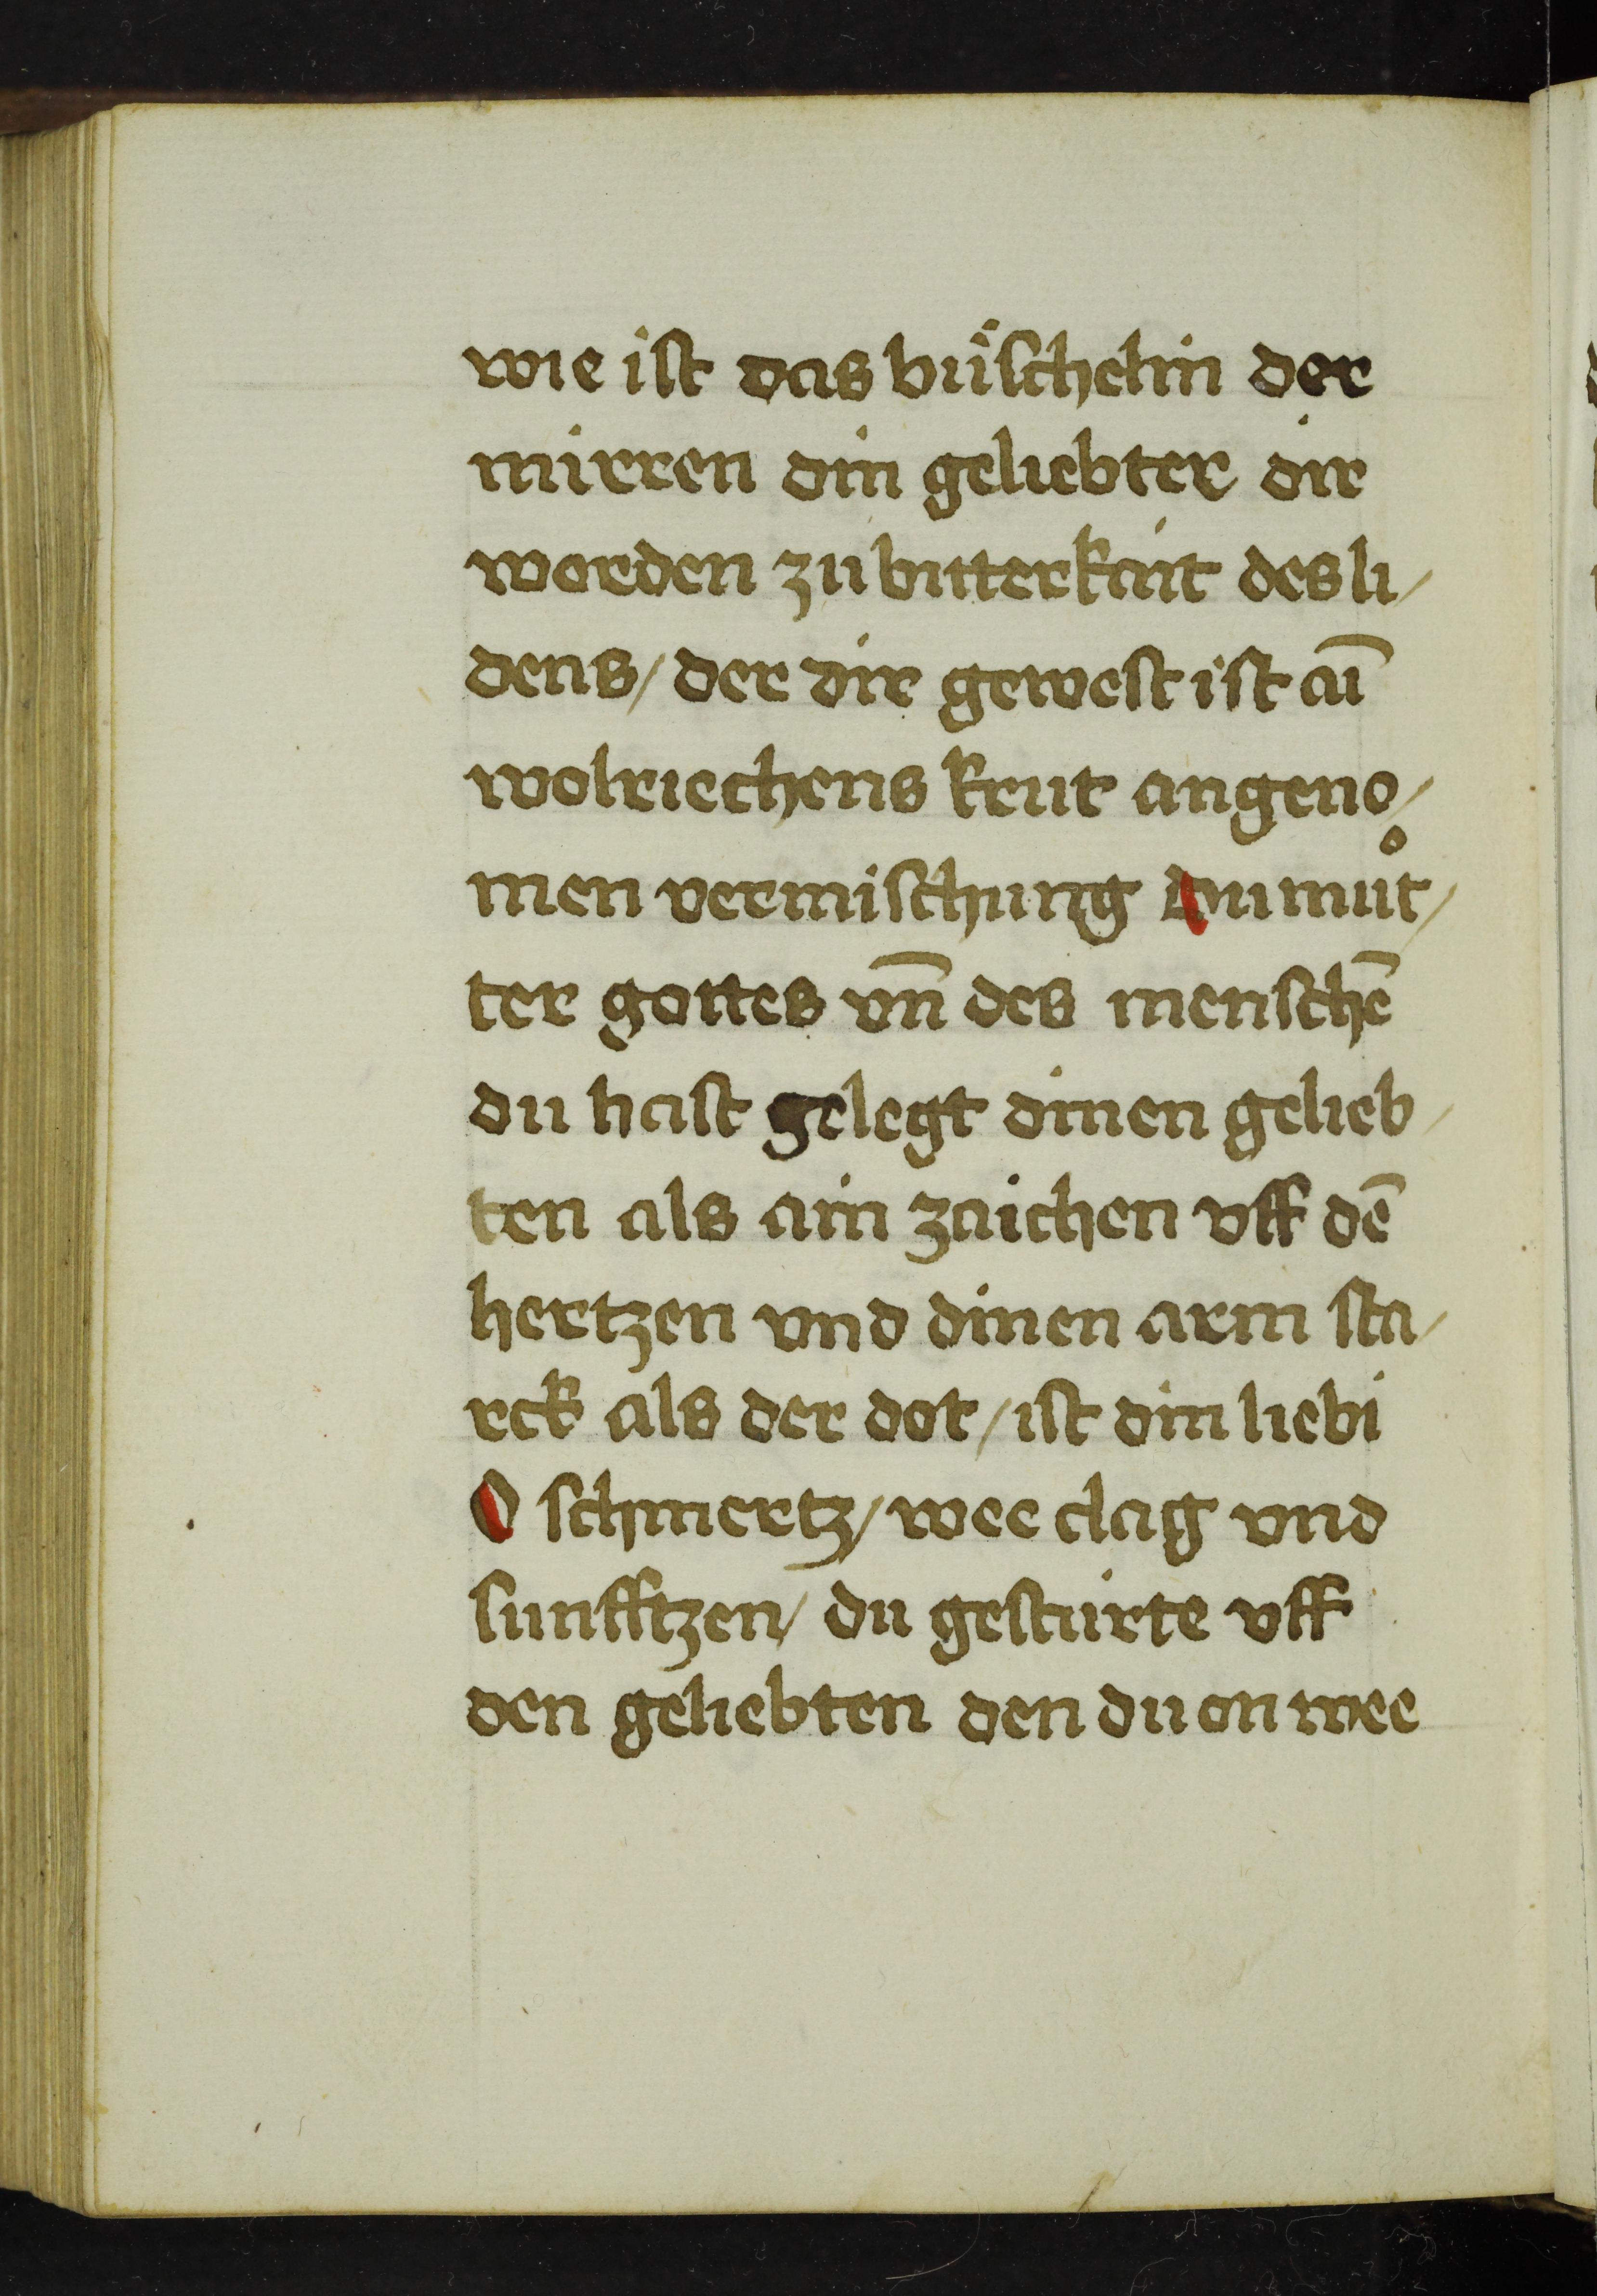 wie ist das büschelin der
mirren din geliebter dir
worden zu bitterkait des li/
dens/ der dir gewest ist aī
wolriechens krut angeno/
men vermischung Du mů̈t/
ter gottes vn̄ des menschē
du hast gelegt dinen gelieb/
ten als ain zaichen vff dē
hertzen vnd dinen arm sta/
rck als der dot/ ist din liebi
O schmertz/ wee clag vnd
sunfftzen/ du gestuirte vff
den geliebten den du on wee